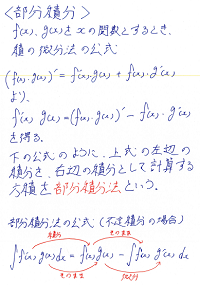 〈部分積分〉
f(x), g(x)をxの関数とするとき、
積の微分法の公式
(f(x)・g(x))′= f′(x)・g(x) + f(x)・g′(x)
より、
f′(x)・g(x) = (f(x)・g(x))′− f(x)・g′(x)
を得る。
下の公式のように、上式の左辺の
積分を、右辺の積分として計算する
方積を部分積分法という。
部分積分法の公式(不定積分の場合)
積分 そのまま
∫f′(x)・g(x)dx = f(x)・g(x) − ∫f(x)・g′(x)dx
そのまま 微分